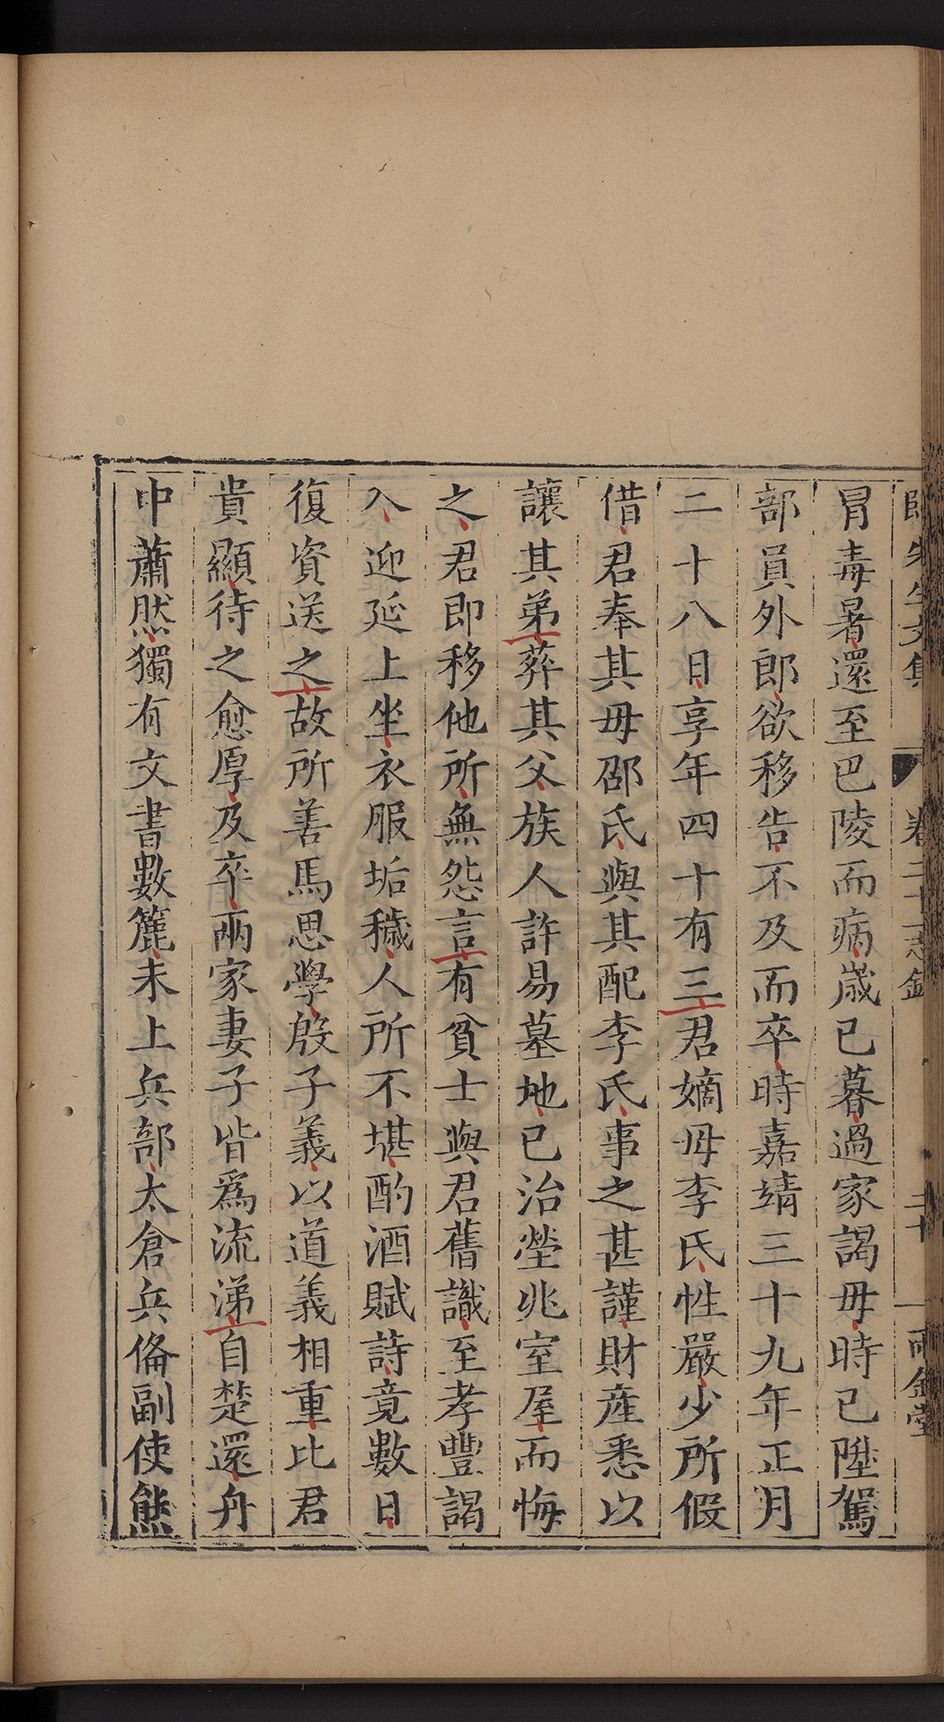 冒毒暑還至巴陵而病歳已暮過家謁毋時已陞駕
部員外郎欲移告不及而卒時嘉靖三十九年正月
二十八日享年四十有三君嫡毋李氏性嚴少所假
借君奉其毋邵氏與其配李氏事之甚謹財産悉以
讓其弟葬其父族人許易墓地已治塋兆室屋而悔
之君即移他所無怨言有貧士與君舊識至孝豐謁
入迎延上坐衣服垢穢人所不堪酌酒賦詩竟數日
復資送之故所善馬思學殷子義以道義相重比君
貴顯待之愈厚及卒兩家妻子皆爲流涕自楚還舟
中蕭然獨有文書數簏未上兵部太倉兵俻副使熊